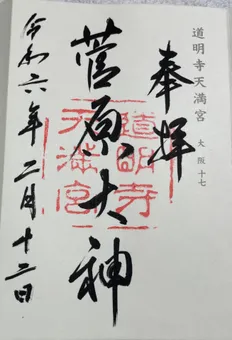 道明寺天満宮
大阪十七
奉拝
菅原大神
道明寺
天満宮
令和六年二月十二日